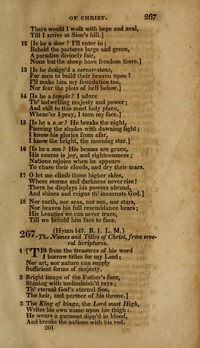 OF CHRIST. 267
There would I walk with hope and zeal,
Till I arrive at Sion's hill.]
12 [Is he a door? I'll enter in;
Behold the pastures large and green,
A paradise divinely fair,
None but the sheep have freedom there.]
13 [Is he design'd a corner-stone,
For men to build their heaven upon?
I'll make him my foundation too,
Nor fear the plots of hell below.]
14 [Is he a temple? I adore
Th' indwelling majesty and power;
And still to this most holy place,
Whene'er I pray, I turn my face.]
15 [Is he a star? He breaks the night,
Piercing the shades with dawning light;
I know his glories from afar,
I know the bright, the morning star.]
16 [Is he a sun? His beams are grace,
His course is joy, and righteousness;
Nations rejoice when he appears
To chase their clouds, and dry their tears.
17 O let me climb those higher skies,
Where storms and darkness never rise!
There he displays his powers abroad,
And shines and reigns th' incarnate God.]
18 Nor earth, nor seas, nor sun, nor stars,
Nor heaven his full resemblance bears;
His beauties we can never trace,
Till we behold him face to face.
267. (Hymn 147. B. I. L. M.)
The Names and Titles of Christ, from several
Scriptures.
1 'TIS from the treasures of his word
I borrow titles for my Lord;
Nor art, nor nature can supply
Sufficient forms of majesty.
2 Bright image of the Father's face,
Shining with undiminish'd rays;
Th' eternal God's eternal Son,
The heir, and partner of his throne.]
3 The King of kings, the Lord most High,
Writes his own name upon his thigh:
He wears a garment dipp'd in blood,
And breaks the nations with his rod.
201